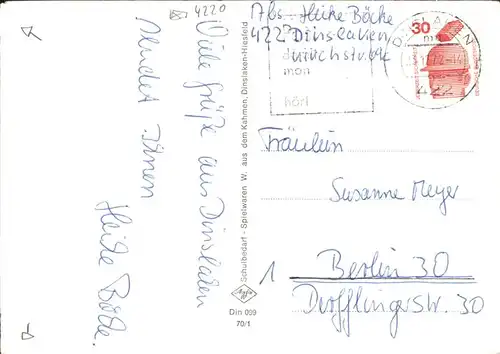 4220
Viele Grüße aus Dinslaken
sendet Ihnen
Heike Böcke.
Schulbedarf - Spielwaren W. aus dem Kahmen, Dinslaken-Hiesfeld
Agfa
Din 099
70/1
Abs. Heike Böcke
422 Dinslaken
mon
hört
DINSLAKEN
422
30
Fräulein
Susanne Meyer
1 Berlin 30
Derfflingerstr. 30